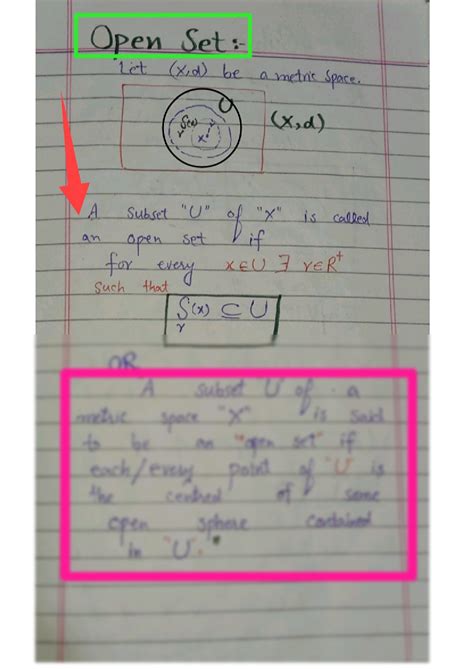 Open Set:-
Let (X,d) be a metric space.
U
Sr(x)
x
r
(X,d)
A subset "U" of "X" is called
an open set if
for every x∈U ∃ r∈R⁺
such that
Sᵣ(x) ⊆ U
OR
A subset "U" of a
metric space "X" is said
to be an "open set" if
each/every point of "U" is
the centred of some
open sphere contained
in "U".